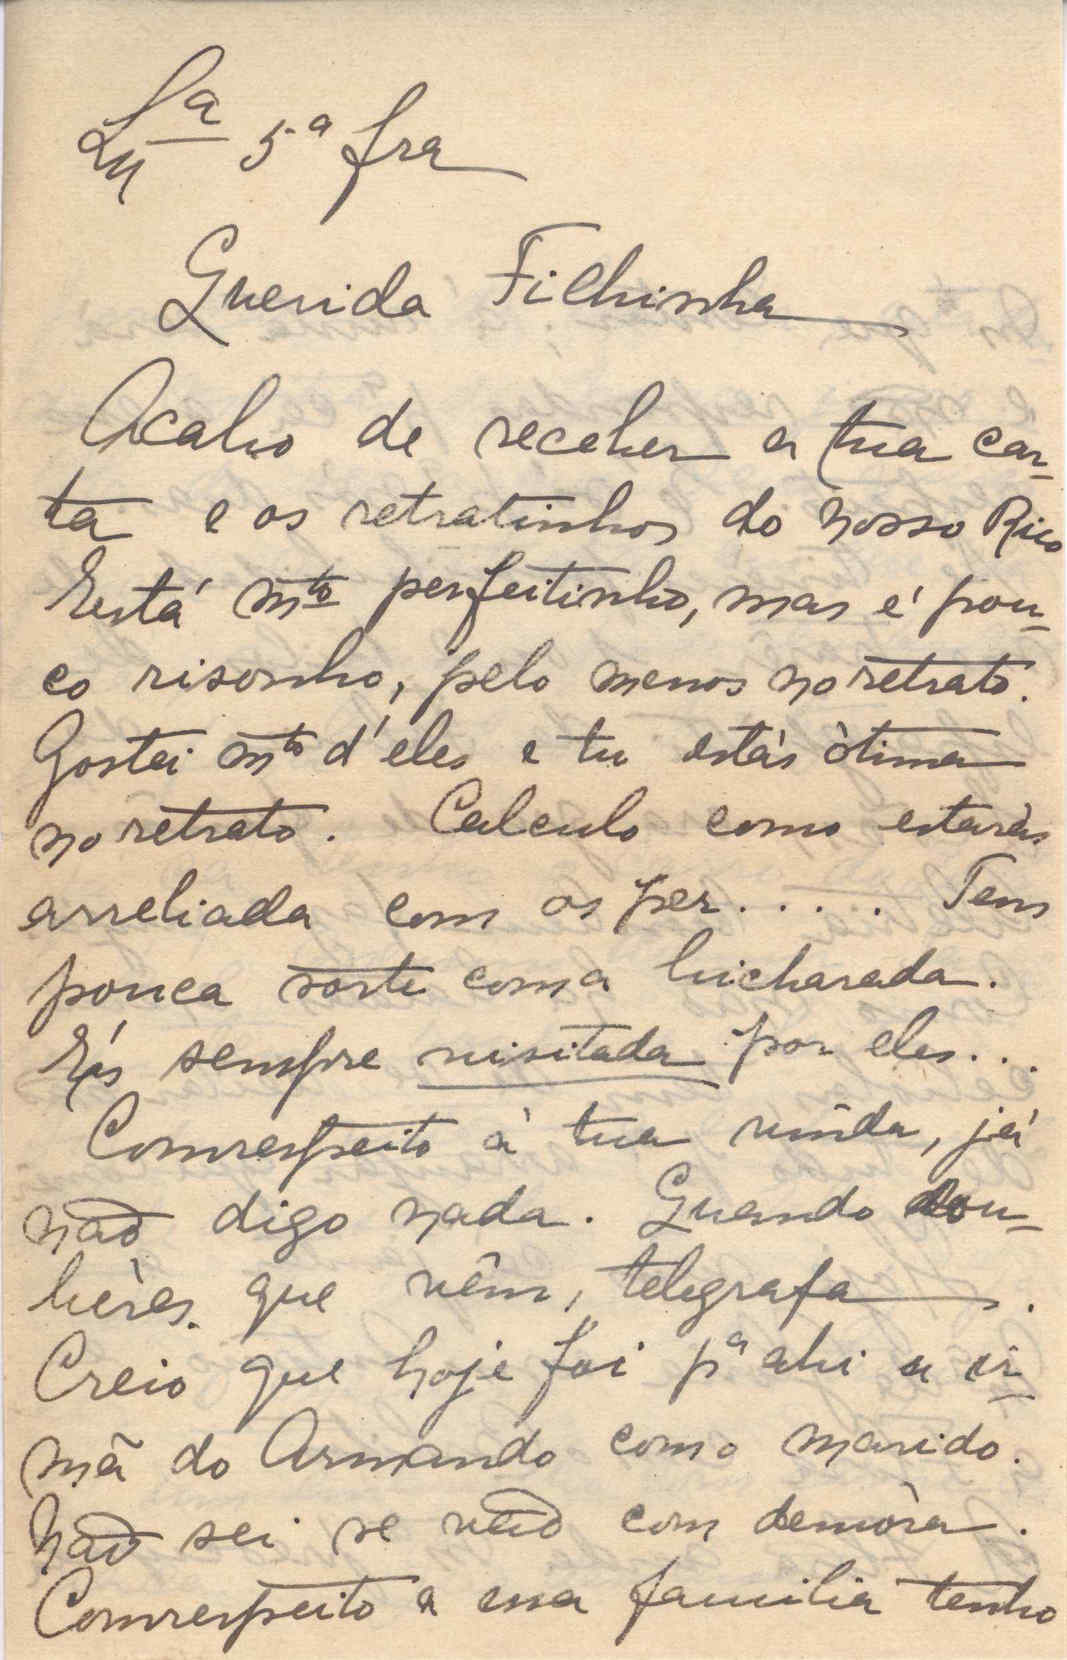 Lxª 5ª fra
Querida Filhinha
Acabo de receber a tua car-
ta e os retratinhos do nosso Rico
Está mto perfeitinho, mas é pou-
co risonho, pelo menos no retrato.
Gostei mto d'eles e tu estás òtima
no retrato. Calculo como estaràs
arreliada com os per..... Tens
pouca sorte com a bicharada.
És sempre visitada por eles...
Com respeito à tua vinda, já
não digo nada. Quando sou-
béres que vêm, telegrafa.
Creio que hoje foi pª ahi a ir-
mã do Armando com o marido.
Não sei se vão com demòra.
Com respeito a essa familia tenho